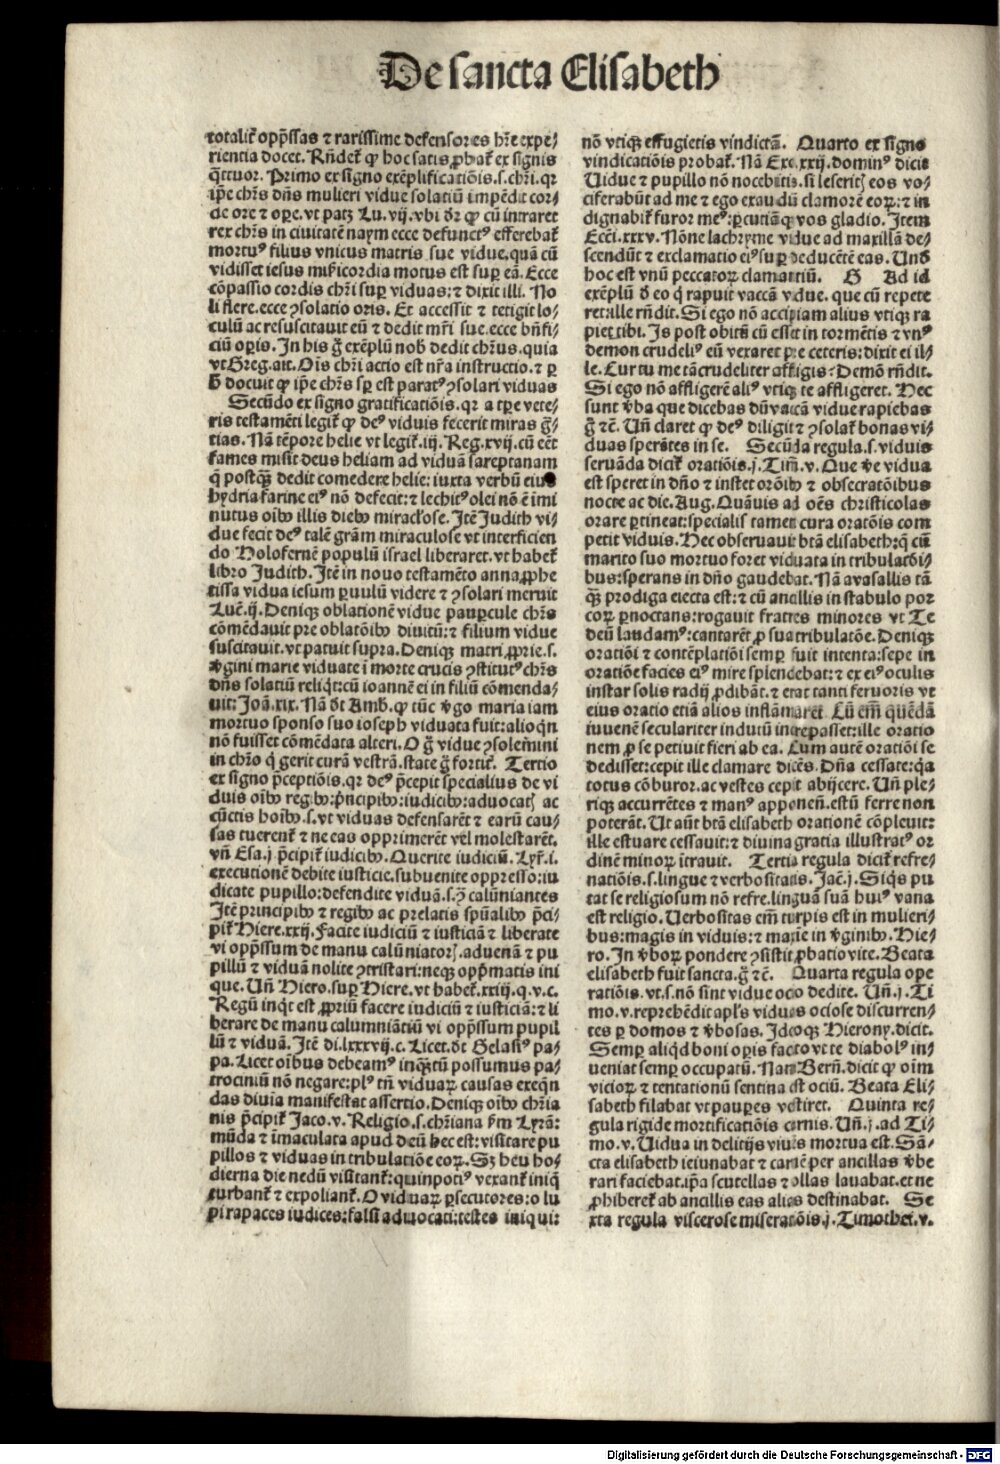 De sancta Elisabeth
totalit᷑ opp̄ssas ⁊ rarissime defensores hr̄e expe⸗
rientia docet. Rn̄det᷑ ꝙ hoc satis ꝓbat᷑ ex signis
q̈ttuor. Primo ex signo exēplificatiōis.s.chr̄i.qꝛ
ip̄e chr̄s dn̄s mulieri vidue solatiū impēdit cor⸗
de ore ⁊ oꝑe.vt patꝫ Lu.vij.vbi dr̄ ꝙ cū intraret
rex chr̄s in ciuitatē naym ecce defunctꝰ efferebat᷑
mortuꝰ filius vnicus matris sue vidue.quā cū
vidisset iesus mīcordia motus est suꝑ eā. Ecce
cōpassio cordis chr̄i suꝑ viduas:⁊ dixit illi. No
li flere.ecce ꝯsolatio oris. Et accessit ⁊ tetigit lo⸗
culū ac resuscitauit eū ⁊ dedit mr̄i sue.ecce bn̄fi⸗
ciū oꝑis. In his g̊ exēplū nob̄ dedit chr̄us.quia
vt Greg.ait. Oīs chr̄i actio est nr̄a instructio.⁊ ꝑ
h̄ docuit ꝙ ip̄e chr̄s sꝑ est paratꝰ ꝯsolari viduas
Secūdo ex signo gratificatiōis.qꝛ a tꝑe vete⸗
ris testamēti legit᷑ ꝙ deꝰ viduis fecerit miras gr̄⸗
tias. Nā tēpore helie vt legit᷑.iij. Reg.xvij.cū eēt
fames misit deus heliam ad viduā sareptanam
q̄ postq̄ꝫ dedit comedere helie: iuxta verbū eius
hydria farine eiꝰ nō defecit:⁊ lechitꝰ olei nō ē imi
nutus oīb⁹ illis dieb⁹ miracl̄ose. Itē Judith vi⸗
due fecit deꝰ talē grām miraculose vt interficien
do Holofernē populū israel liberaret.vt habet᷑
libro Judith. Itē in nouo testamēto anna ꝓphe
tissa vidua iesum ꝑuulū videre ⁊ ꝯsolari meruit
Luē.ij. Deniqꝫ oblationē vidue pauꝑcule chr̄s
cōmēdauit pre oblatōib⁹ diuitū:⁊ filium vidue
suscitauit.vt patuit supra. Deniqꝫ matri ꝓprie.s.
ꝟgini marie viduate ī morte crucis ꝯstitutꝰ chr̄s
dn̄s solatiū reliq̇t:cū ioannē ei in filiū cōmenda⸗
uit: Joā.xix. Nā dt̄ Amb. ꝙ tūc ꝟgo maria iam
mortuo sponso suo ioseph viduata fuit:alioq̇n
nō fuisset cōmēdata alteri. O g̊ vidue ꝯsolemini
in chr̄o q̇ gerit curā vestrā.state g̊ fortit᷑. Tertio
ex signo p̄ceptiōis.qꝛ deꝰ p̄cepit specialius de vi
duis oīb⁹ regib⁹:pn̄cipib⁹:iudicib⁹:aduocatꝭ ac
cūctis hoīb⁹.s.vt viduas defensarēt ⁊ earū cau⸗
sas tuerent᷑ ⁊ ne eas opprimerēt vel molestarēt.
vn̄ Esa.j p̄cipit᷑ iudicib⁹. Querite iudiciū. Lyr̄.i.
executionē debite iusticie.subuenite oppresso:iu
dicate pupillo:defendite viduā.s.ꝯ calūniantes
Itē principib⁹ ⁊ regib⁹ ac prelatis spūalib⁹ p̄ci⸗
pit᷑ Hiere.xxij. Facite iudiciū ⁊ iusticiā ⁊ liberate
vi opp̄ssum de manu calūniatorꝭ.aduenā ⁊ pu
pillū ⁊ viduā nolite ꝯtristari:neqꝫ opp̄matis ini
que. Un̄ Hiero.suꝑ Hiere.vt habet᷑.xxiij.q.v.c.
Regū inq̇t est ꝓpriū facere iudiciū ⁊ iusticiā:⁊ li
berare de manu calumniātiū vi opp̄ssum pupil
lū ⁊ viduā. Itē di.lxxxvij.c. Licet.dt̄ Gelasiꝰ pa⸗
pa. Licet oībus debeamꝰ inq̄ꝫtū possumus pa⸗
trociniū nō negare:plꝰ tn̄ viduaꝝ causas exeq̄n
das diuia manifestat assertio. Deniqꝫ oīb⁹ chr̄ia
nis p̄cipit᷑ Jaco.v. Religio.s.chr̄iana ꝑm Lyrā:
mūda ⁊ īmaculata apud deū hec est:visitare pu
pillos ⁊ viduas in tribulatiōe eoꝝ. Sꝫ heu ho⸗
dierna die nedū visitant᷑:quinpotiꝰ vexant᷑ iniq̄
turbant᷑ ⁊ expoliant᷑. O viduaꝝ ꝑsecutores:o lu
pi rapaces iudices:falsi aduocati:testes iniqui:
nō vtiqꝫ effugietis vindictā. Quarto ex signo
vindicatiōis probat᷑. Nā Exo.xxij.dominꝰ dicit
Uidue ⁊ pupillo nō nocebitis.si leseritꝭ eos vo⸗
ciferabūt ad me ⁊ ego exaudiā clamorē eoꝝ:⁊ in
dignabit᷑ furor meꝰ:ꝑcutiāqꝫ vos gladio. Item
Ecci.xxxv. Nōne lachryme vidue ad maxillā de⸗
scendūt ⁊ exclamatio eiꝰ suꝑ deducētē eas. Und̄
hoc est vnū peccatoꝝ clamantiū. G Ad id
exēplū d̄ eo q̇ rapuit vaccā vidue. que cū repete
ret:ille rn̄dit. Si ego nō accipiam alius vtiqꝫ ra
piet tibi. Is post obitū cū esset in tormētis ⁊ vnꝰ
demon crudeliꝰ eū vexaret pre ceteris: dixit ei il⸗
le. Cur tu me tā crudeliter affligis? Demō rn̄dit.
Si ego nō affligerē aliꝰ vtiqꝫ te affligeret. Hec
sunt ꝟba que dicebas dū vaccā vidue rapiebas
g̊ ⁊c̄. Un̄ claret ꝙ deꝰ diligit ⁊ ꝯsolat᷑ bonas vi⸗
duas sperātes in se. Secūda regula.s.viduis
seruāda dicit᷑ orōtiōis.j. Tim̄.v. Que ꝟe vidua
est speret in dn̄o ⁊ instet orōib⁹ ⁊ obsecratōnibus
nocte ac die. Aug. Quāuis ad oēs christicolas
orare ꝑtineat:specialis tamen cura oratōis com
petit viduis. Hec obseruauit btā elisabeth:q̄ cū
marito suo mortuo foret viduata in tribulatōi⸗
bus:sperans in dn̄o gaudebat. Nā a vasallis tā
q̄ꝫ prodiga eiecta est:⁊ cū ancillis in stabulo por
coꝝ ꝑnoctans:rogauit fratres minores vt Te
deū laudamꝰ:cantarēt ꝓ sua tribulatōe. Deniqꝫ
oratiōi ⁊ contēplatiōi semꝑ fuit intenta:sepe in
oratiōe facies eiꝰ mire splendebat:⁊ ex eiꝰ oculis
instar solis radij ꝓdibāt.⁊ erat tanti feruoris vt
eius oratio etiā alios inflāmaret. Cū em̄ quēdā
iuuenē seculariter indutū increpasset:ille oratio
nem ꝓ se petiuit fieri ab ea. Cum autē oratiōi se
dedisset:cepit ille clamare dicēs. Dn̄a cessate:q̇a
totus cōburor.ac vestes cepit abijcere. Un̄ ple⸗
riqꝫ accurrētes ⁊ manꝰ apponen̄.estū ferre non
poterāt. Ut aūt btā elisabeth orationē cōpleuit:
ille estuare cessauit:⁊ diuina gratia illustratꝰ or
dinē minoꝝ ītrauit. Tertia regula dicit᷑ refre⸗
natiōis.s.lingue ⁊ verbositatis. Jac̄.j. Siq̇s pu
tat se religiosum nō refre.linguā suā huiꝰ vana
est religio. Verbositas em̄ turpis est in mulieri⸗
bus:magis in viduis:⁊ maxīe in ꝟginib⁹. Hie⸗
ro. In ꝟboꝝ pondere ꝯsistit ꝓbatio vite. Beata
elisabeth fuit sancta.g̊ ⁊c̄. Quarta regula ope
ratiōis.vt.s.nō sint vidue ocio dedite. Un̄.j. Ti
mo.v.reprehēdit apl̄s viduas ociose discurren⸗
tes ꝑ domos ⁊ ꝟbosas. Ideoqꝫ Hierony.dicit.
Semꝑ aliq̇d boni oꝑis facto vt te diabolꝰ in⸗
ueniat semꝑ occupatū. Nam Bern̄.dicit ꝙ oīm
vicioꝝ ⁊ tentationū sentina est ociū. Beata Eli⸗
sabeth filabat vt pauꝑes vestiret. Quinta re⸗
gula rigide mortificatiōis carnis. Un̄.j.ad Ti⸗
mo.v. Uidua in delitijs viuēs mortua est. Sā⸗
cta elisabeth ieiunabat ⁊ carnē per ancillas ꝟbe
rari faciebat.ip̄a scutellas ⁊ ollas lauabat.et ne
ꝓhiberet᷑ ab ancillis eas alias destinabat. Se
xta regula viscerose miseratōis.j. Timothei.v.
Digitalisierung gefördert durch die Deutsche Forschungsgemeinschaft - DFG